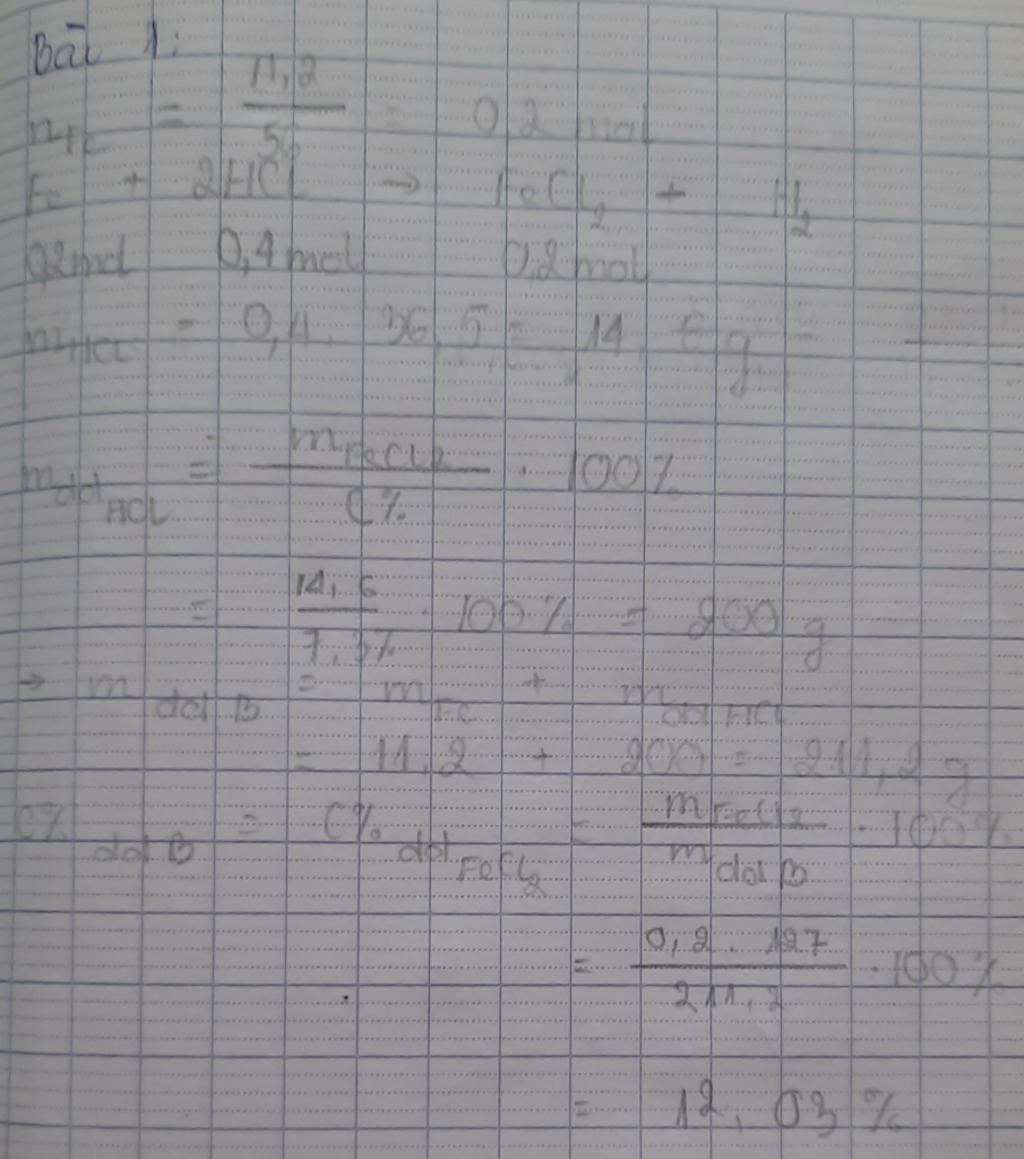 Bài 1:
nFe = 11,2 / 56 = 0,2 mol
Fe + 2HCl → FeCl2 + H2
0,2mol 0,4mol 0,2mol
mHCl = 0,4. 36,5 = 14,6 g
mddHCl = mFeCl2 / C% . 100%
= 14,6 / 7,3% . 100% = 200 g
→ m dd B = mFe + mdd HCl
= 11,2 + 200 = 211,2 g
C% dd B = C% dd FeCl2 = mFeCl2 / m dd B . 100%
= 0,2 . 127 / 211,2 . 100%
= 12,03 %